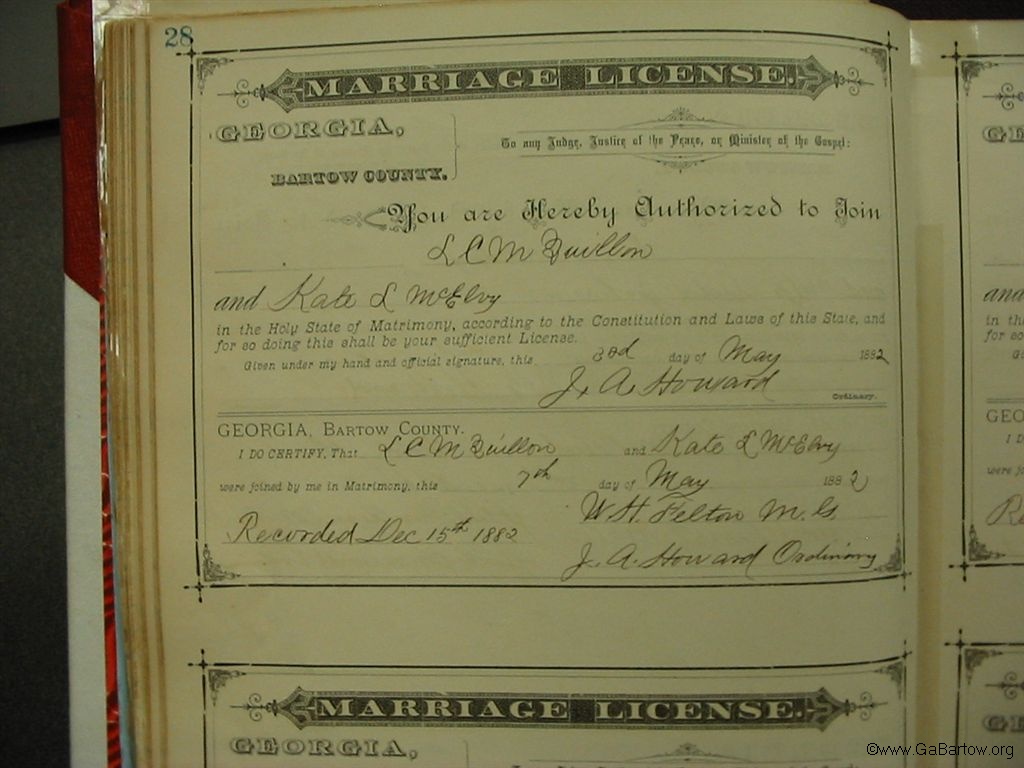 28
MARRIAGE LICENSE.
GEORGIA,
BARTOW COUNTY.
To any Judge, Justice of the Peace, or Minister of the Gospel:
You are Hereby Authorized to Join
L C M Quillon
and Kate L McElvy
in the Holy State of Matrimony, according to the Constitution and Laws of this State, and
for so doing this shall be your sufficient License.
Given under my hand and official signature, this 3rd day of May 1882
J. A. Howard
Ordinary.
GEORGIA, BARTOW COUNTY.
I DO CERTIFY, That L C M Quillon and Kate L McElvy
were joined by me in Matrimony, this 7th day of May 1882
W. H. Felton M. G.
Recorded Dec 15th 1882
J. A. Howard Ordinary
MARRIAGE LICENSE.
GEORGIA,
©www.GaBartow.org